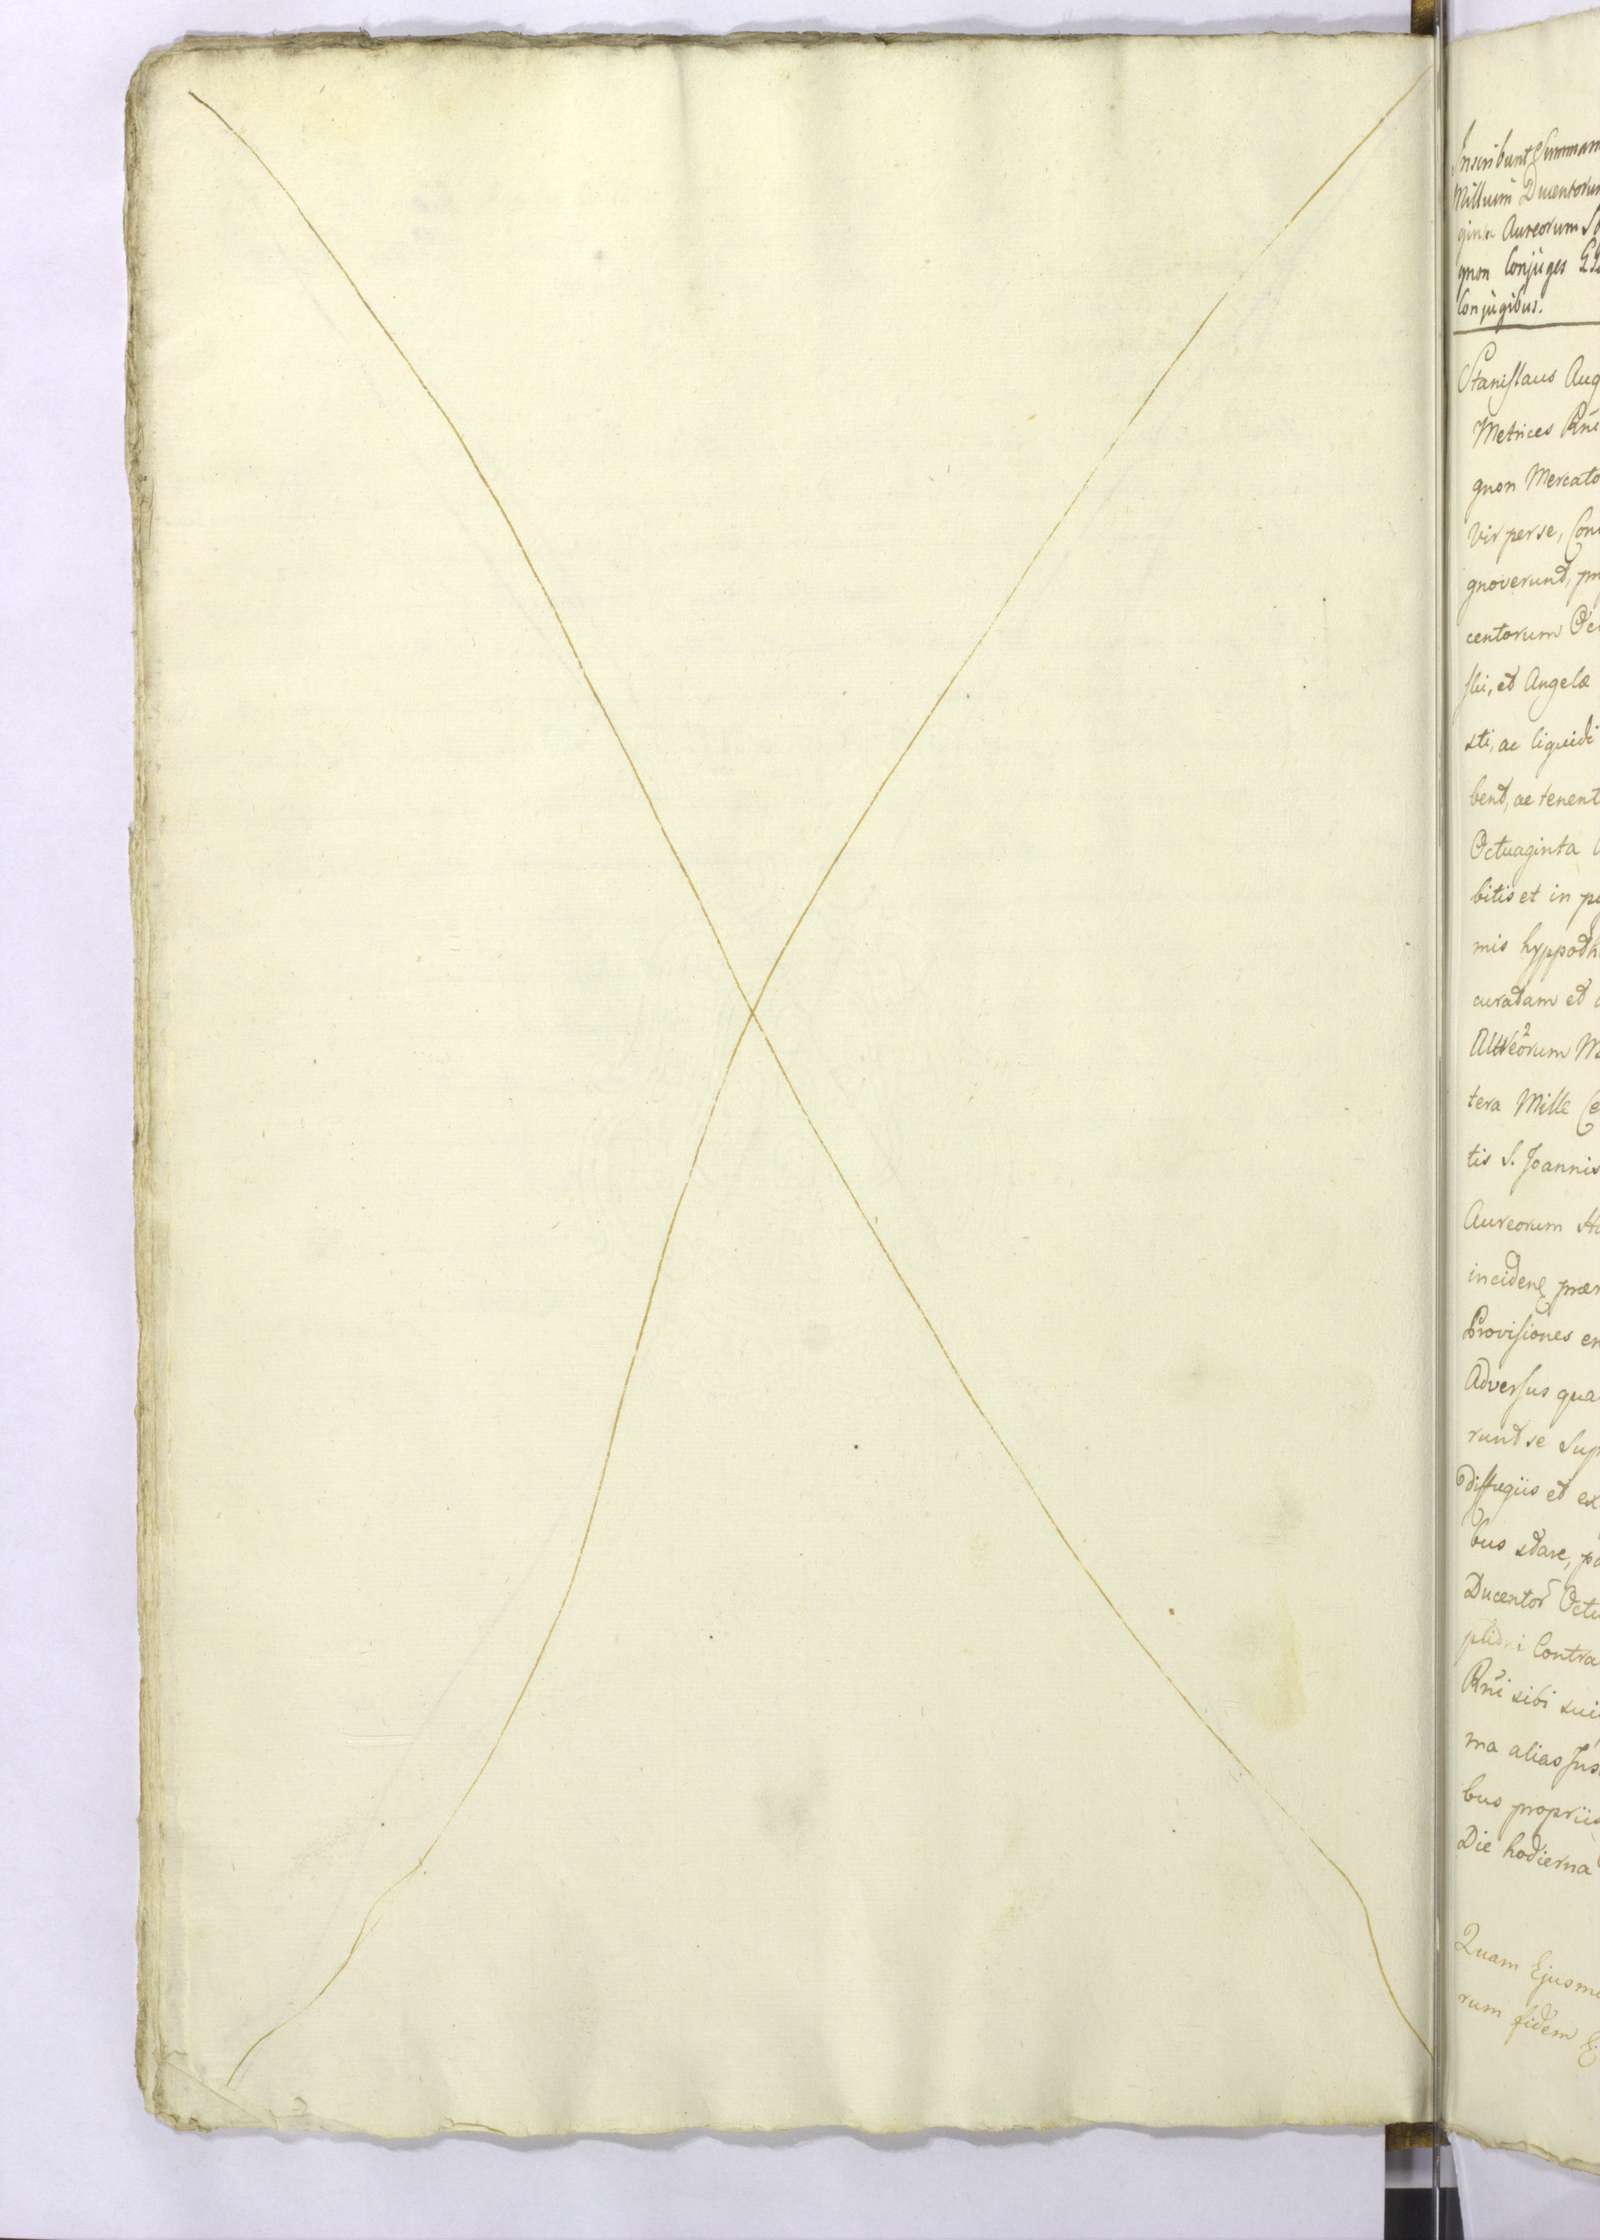 Inscribunt Summam
Millium Ducentorum
ginta Aureorum
gnon Conjuges
Conjugibus.
Stanislaus Aug
Metrices Rni
gnon Mercato
Vir per se, Con
gnoverunt, pr
centorum Oct
slii, et Angelæ
sti, ac liquidi
bent, ac tenent
Octuaginta
bitis et in
mis hyppoth
curatam et
Aureorum
tera Mille Ce
tis S. Joannis
Aureorum
inciden
Provisiones
Adversus qua
runt se Sup
Diffugiis et ex
bus stare, pa
Ducentor Octu
Contra
Rni sibi
ma alias
bus propriis
Die hodierna
Quam Ejusmo
rum fidem